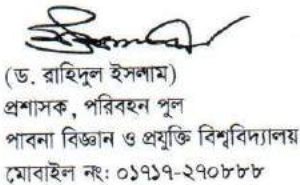 (ড. রাহিদুল ইসলাম)
প্রশাসক, পরিবহন পুল
পাবনা বিজ্ঞান ও প্রযুক্তি বিশ্ববিদ্যালয়
মোবাইল নং: ০১৭১৭-২৭০৮৮৮